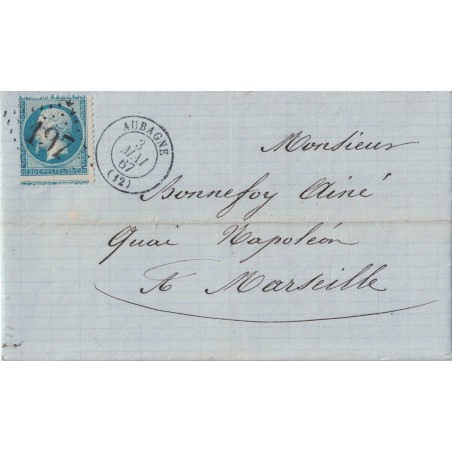 197
20 C POSTES 20 C
AUBAGNE
3
MAI
67
(12)
Monsieur
Bonnefoy Ainé
Quai Napoléon
A Marseille